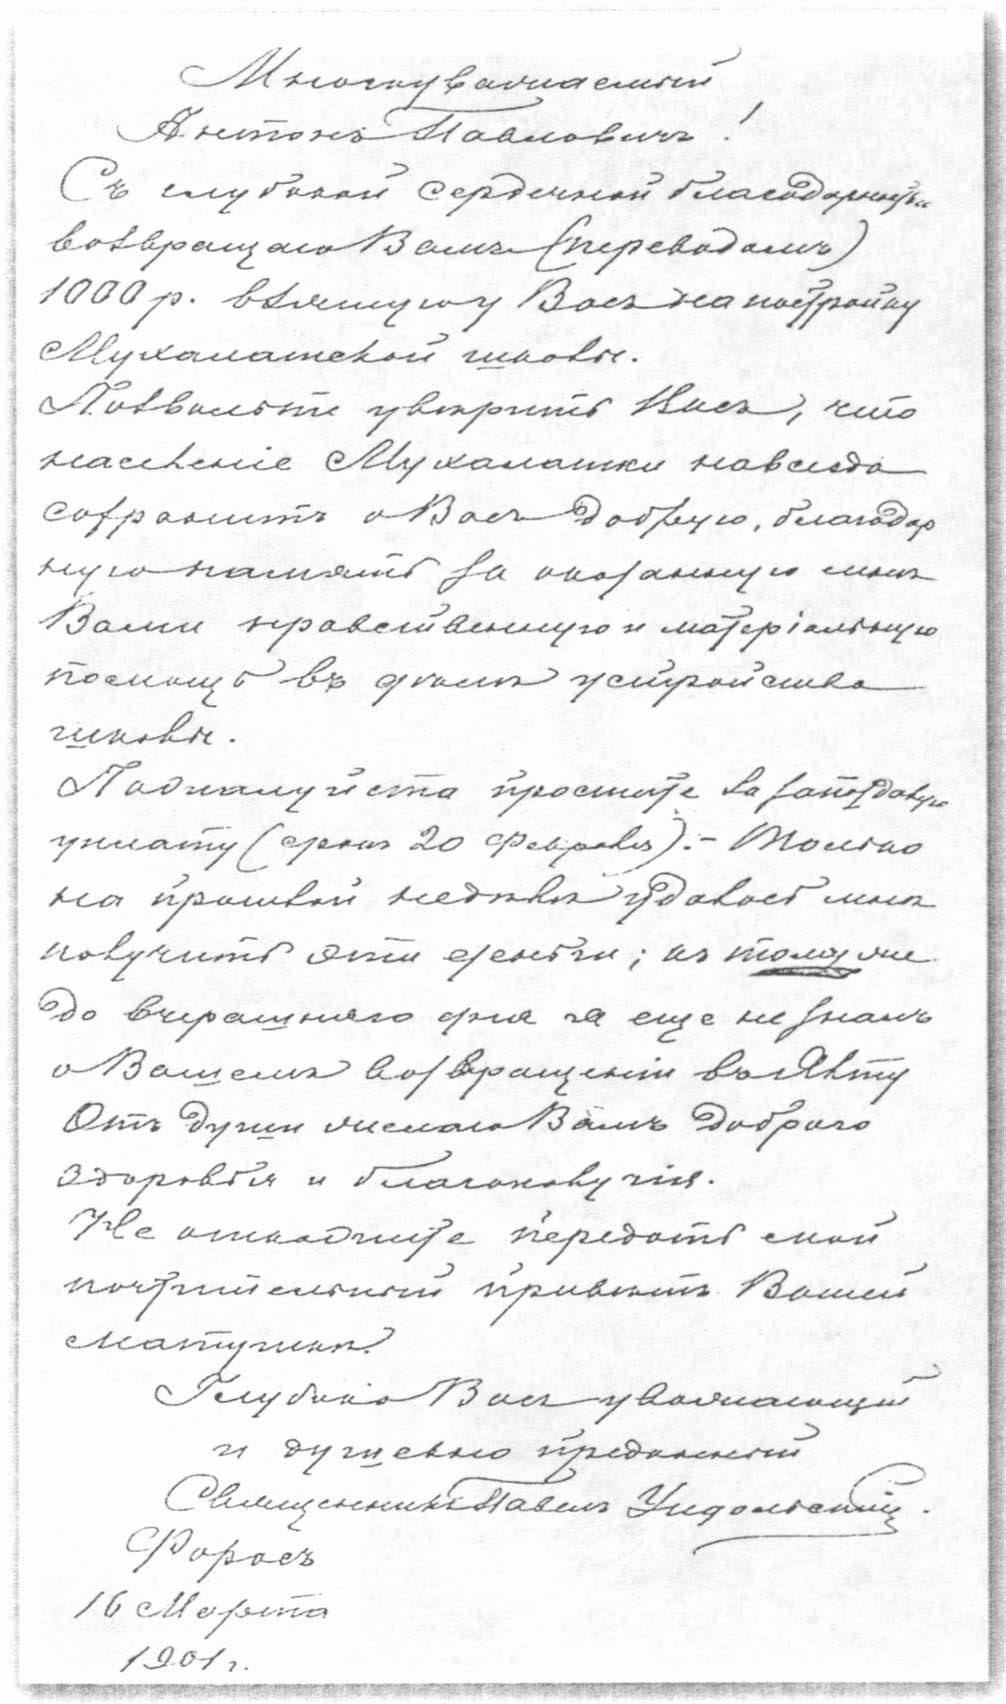 Многоуважаемый
Антонъ Павловичъ!
Съ глубокой сердечной благодарностью
возвращаю Вамъ (переводомъ)
1000 р. взятую у Васъ на постройку
Мухалатской школы.
Позвольте увѣрить Васъ, что
населеніе Мухалатки навсегда
сохранитъ о Васъ добрую, благодар
ную память за оказанную мнѣ
Вами нравственную и матеріальную
помощь въ дѣлѣ устройства
школы.
Пожалуйста простите за запоздалую
уплату (срокъ 20 Февраля). – Только
на прошлой недѣлѣ удалось мнѣ
получить эти деньги; къ тому же
до вчерашняго дня я еще не зналъ
о Вашемъ возвращеніи въ Ялту
Отъ души желаю Вамъ добраго
здоровья и благополучія.
Не откажите передать мой
почтительный привѣтъ Вашей
матушкѣ.
Глубоко Васъ уважающій
и душевно преданный
Священникъ Павелъ Ундольскій.
Форосъ
16 Марта
1901 г.